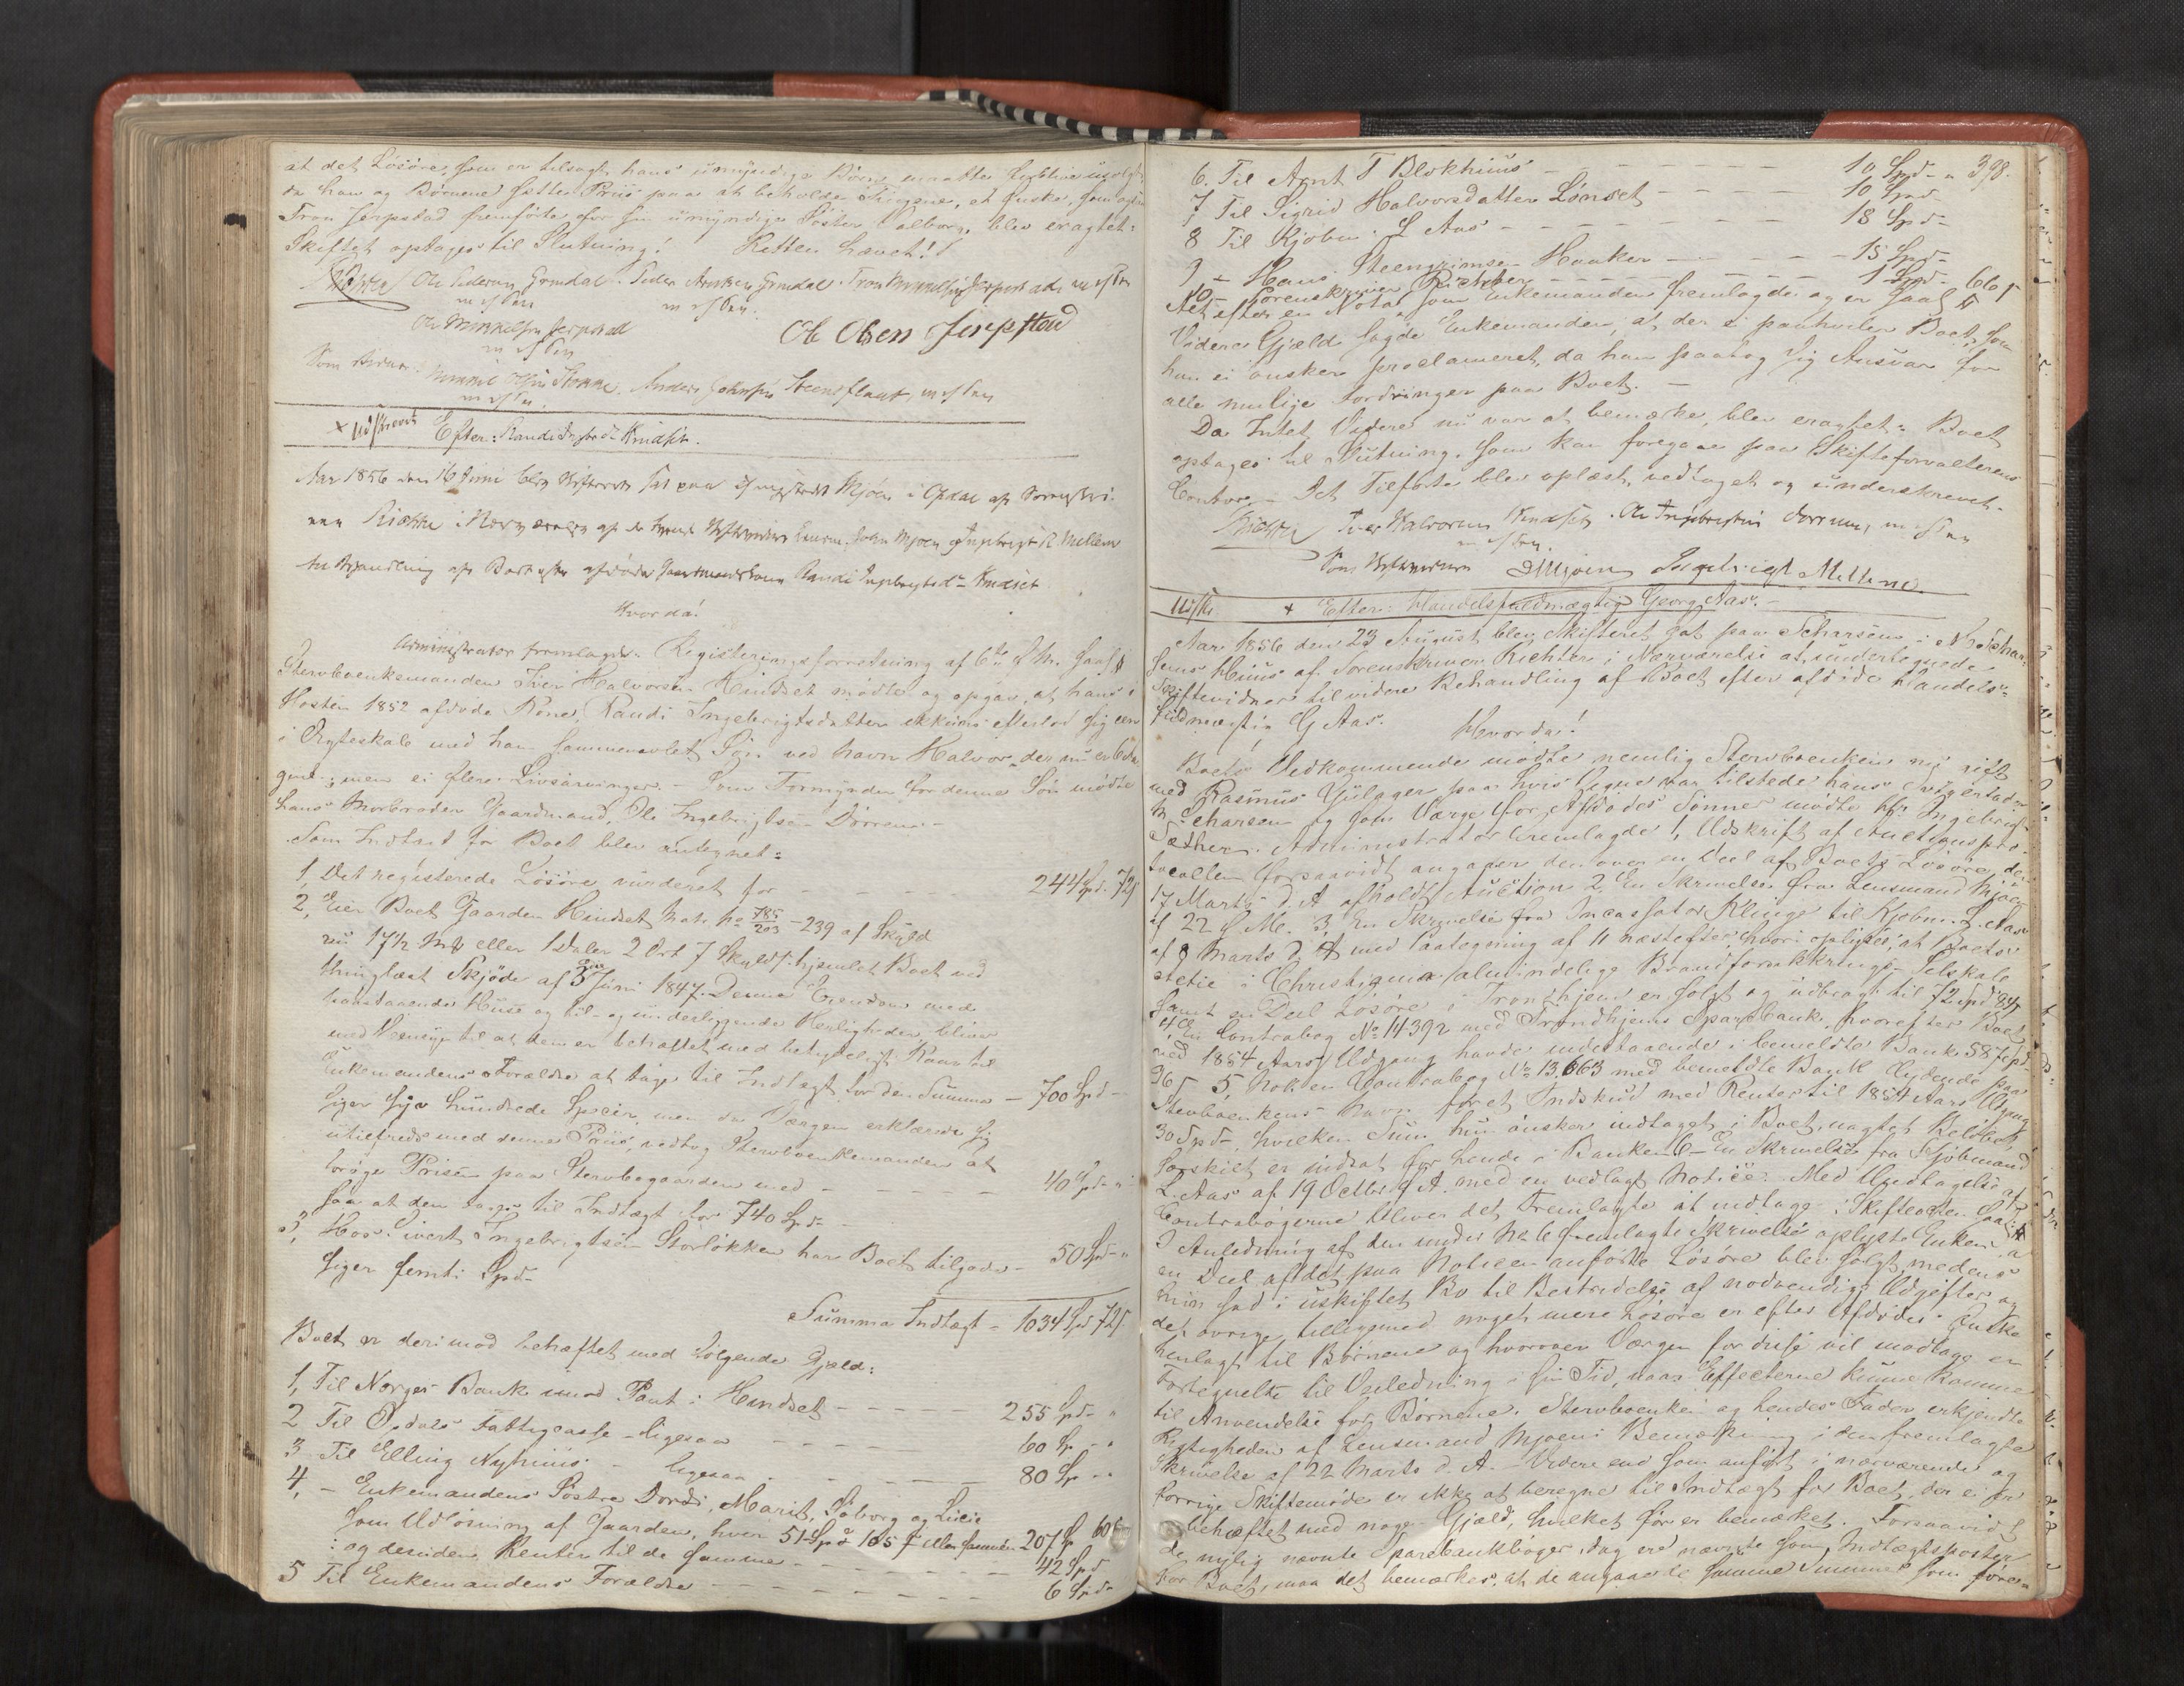 at det Løsøre, som er tilsagt hans umyndige Børn maatte forblive usolgt
da han og Børnene sætter Priis paa at beholde Tingene, et Ønske, som og
Tron Jerpstad fremførte for sin umyndige Søster Valborg, blev eragtet:
Skiftet optages til Slutning! Retten hævet!
Ole Pedersen Grindal. Peder Arntsen Grindal. Tron Mikkelsen Jerpstad m f Pen
m f Pen m f Pen.
Ole Mikkelsen Jerpstad Ole Olsen Jerpstad
m f Pen
Som Vidner: Anders Johnsen Steenflaat, m f Pen
m f Pen.
x Udskrevet Efter: Randi Ingebr.dr Kindset.
Aar 1856 den 16 Juni blev Skifteret sat paa Thingstedet Mjøen i Opdal af Sorenskri-
ver Richter i Nærværelse af de tvende Skiftevidner Lensm. John Mjøen og Ingebrigt R. Mellem
til Behandling af Boet efter afdøde Gaardmandskone Randi Ingebrigtsdr Kindset
Hvorda!
Administrator fremlagde: Registreringsforretning af 6te d. M.
Stervboenkemanden Iver Halvorsen Kindset mødte og opgav, at hans i
Høsten 1852 afdøde Kone, Randi Ingebrigtsdatter ikkuns efterlod sig een
i Ægteskab med ham sammenavlet Søn ved Navn Halvor, der nu er
men ei flere Livsarvinger. - Som Formynder for denne Søn mødte
hans Morbroder Gaardmand, Ole Ingebrigtsen Dørrem -
Som Indtægt for Boet blev antegnet:
1, Det registerede Løsøre, vurderet for - - - - - 244 Spd. 72 ß
2, Eier Boet Gaarden Kindset Matr. No 785/203 - 239 af Skyld
nu 17½ Mk eller 1 Daler 2 Ort 7 Skyld ß. hjemlet Boet ved
thinglæst Skjøde af 5 Juni 1847. Denne Eiendom med
paastaaende Huse og til- og underliggende Herligheder, bliver
med Hensyn til at den er behæftet med betydeligt Kaar til
Enkemandens Forældre at tage til Indtægt for den Summa - 700 Spd -
siger syv hundrede Specier, men da Værgen erklærede sig
utilfreds med denne Priis, vedtog Stervboenkemanden at
forøge Prisen paa Stervbogaarden med - - - - - 40 Spd - "
saa at den tages til Indtægt for 740 Spd -
3, Hos Sivert Ingebrigtsen Storløkken har Boet tilgode - 50 Spd - "
siger femti Spd -
Summa Indtægt - 1034 Spd 72 ß
Boet er derimod behæftet med følgende Gjæld:
1, Til Norges Bank imod Pant i Kindset - - - - 255 Spd - "
2 Til Opdals Fattigcasse - ligesaa - - - - 60 Sp - "
3 Til Elling Nyhuus - ligesaa - - - - 80 Sp - "
4, - Enkemandens Søstre Dordi, Marit, Siborg og Lucie
som Udløsning af Gaarden, hver 51 Spd 105 ß eller sammen 207 Sp 60 ß
og desuden Renter til de samme - - - - 42 Spd
5 Til Enkemandens Forældre - - - - 6 Spd -
398.
6. Til Arnt T Blokhuus - - - - - 10 Spd - "
7 Til Sigrid Halvorsdatter Lønset - - - - 10 Spd -
8 Til Kjøbm. L Aas - - - - - 18 Spd -
9 - Hans Steengrimsen Hauker - - - - - 15 Spd -
10 - Sorenskriver Richter - - - - 1 Spd - 66 ß
Alt efter en Nota, som Enkemanden fremlagde og er saal.
Videre Gjæld sagde Enkemanden, at der ei paahviler Boet, som
han ei ønsker proclameret, da han paatog sig Ansvar for
alle mulige Fordringer paa Boet. -
Da Intet Videre nu var at bemærke, blev eragtet: Boet
optages til Slutning, som kan foregaae paa Skifteforvalterens
Contor. - Det Tilførte blev oplæst, vedtaget og underskrevet.
Richter Iver Halvorsen Kindset. Ole Ingebrigtsen Dørrem, m f Pen
m f Pen.
Som Skiftevidner JMjøen Ingebrigt Mellem.
x Efter: Handelsfuldmægtig Georg Aas. -
Aar 1856 den 23 August blev Skifteret sat paa Scharsem i
sems Huus af Sorenskriver Richter i Nærværelse af undertegnede
Skiftevidner til videre Behandling af Boet efter afdøde Handels-
fuldmægtig G Aas.
Hvorda!
Boets Vedkommende mødte nemlig Stervboenken nu gift
med Rasmus Gulager, paa hvis Vegne var tilstede hans Svigerfader
M. Scharsem og som Værge for Afdødes Sønner mødte Hr. Ingebrigt
Sæther. Administrator fremlagde 1, Udskrift af Auctionspro-
tocollen forsaavidt angaaer den over en Deel af Boets Løsøre, den
17 Marts d. A afholdte Auction 2, En Skrivelse fra Lensmand Mjøen
af 22 s. M. 3, En Skrivelse fra Incassator Klingen til Kjøbm. L. Aas
af 8 Marts d A med Paategning af 11 næstefter, hvori oplyses, at Boets
i Christiania almindelige Brandforsikkrings-Selskab
samt en Deel Løsøre i Trondhjem er solgt og udbragt til 72 Spd 84 ß
4, En Contrabog No 14392 med Trondhjems Sparebank, hvorefter Boet
ved 1854 Aars Udgang havde indestaaende i bemeldte Bank 58 Spd
96 ß 5, Nok en Contrabog No 13.663 med bemeldte Bank lydende paa
Stervboenkens Navn for et Indskud med Renter til 1854 Aars Udgang
30 Spd -, hvilken Sum hun ønsker indtaget i Boet, uagtet Beløbet
særskilt er indsat for hende i Banken 6 - En Skrivelse fra Kjøbmand
L. Aas af 19 Octbr. f A. med en vedlagt Notice. Med Undtagelse af
Contrabøgerne bliver det Fremlagte at indtage i Skifteacten
I Anledning af den under No 6 fremlagte Skrivelse oplyste Enken, at
en Deel af det paa Noticen anførte Løsøre blev solgt, medens
hun sad i uskiftet Bo til Bestridelse af nødvendige Udgifter og
det øvrige, tilligemed noget mere Løsøre er efter Afdødes Ønske
henlagt til Børnene og hvorover Værgen for disse vil modtage en
Fortegnelse til Veiledning i sin Tid, naar Effecterne kunne komme
til Anvendelse for Børnene. Stervboenken og hendes Fader erkjendte
Rigtigheden af Lensmand Mjøens Bemærkning i den fremlagte
Skrivelse af 22 Marts d. A. - Videre end som anført i nærværende og
forrige Skiftemøde er ikke at beregne til Indtægt for Boet, der ei er
behæftet med nogen Gjæld, hvilket før er bemærket. Forsaavidt
de nylig nævnte Sparebankbøger idag ere nævnte som Indtægtsposter
for Boet, maa det bemærkes, at de angaae de samme Summer som